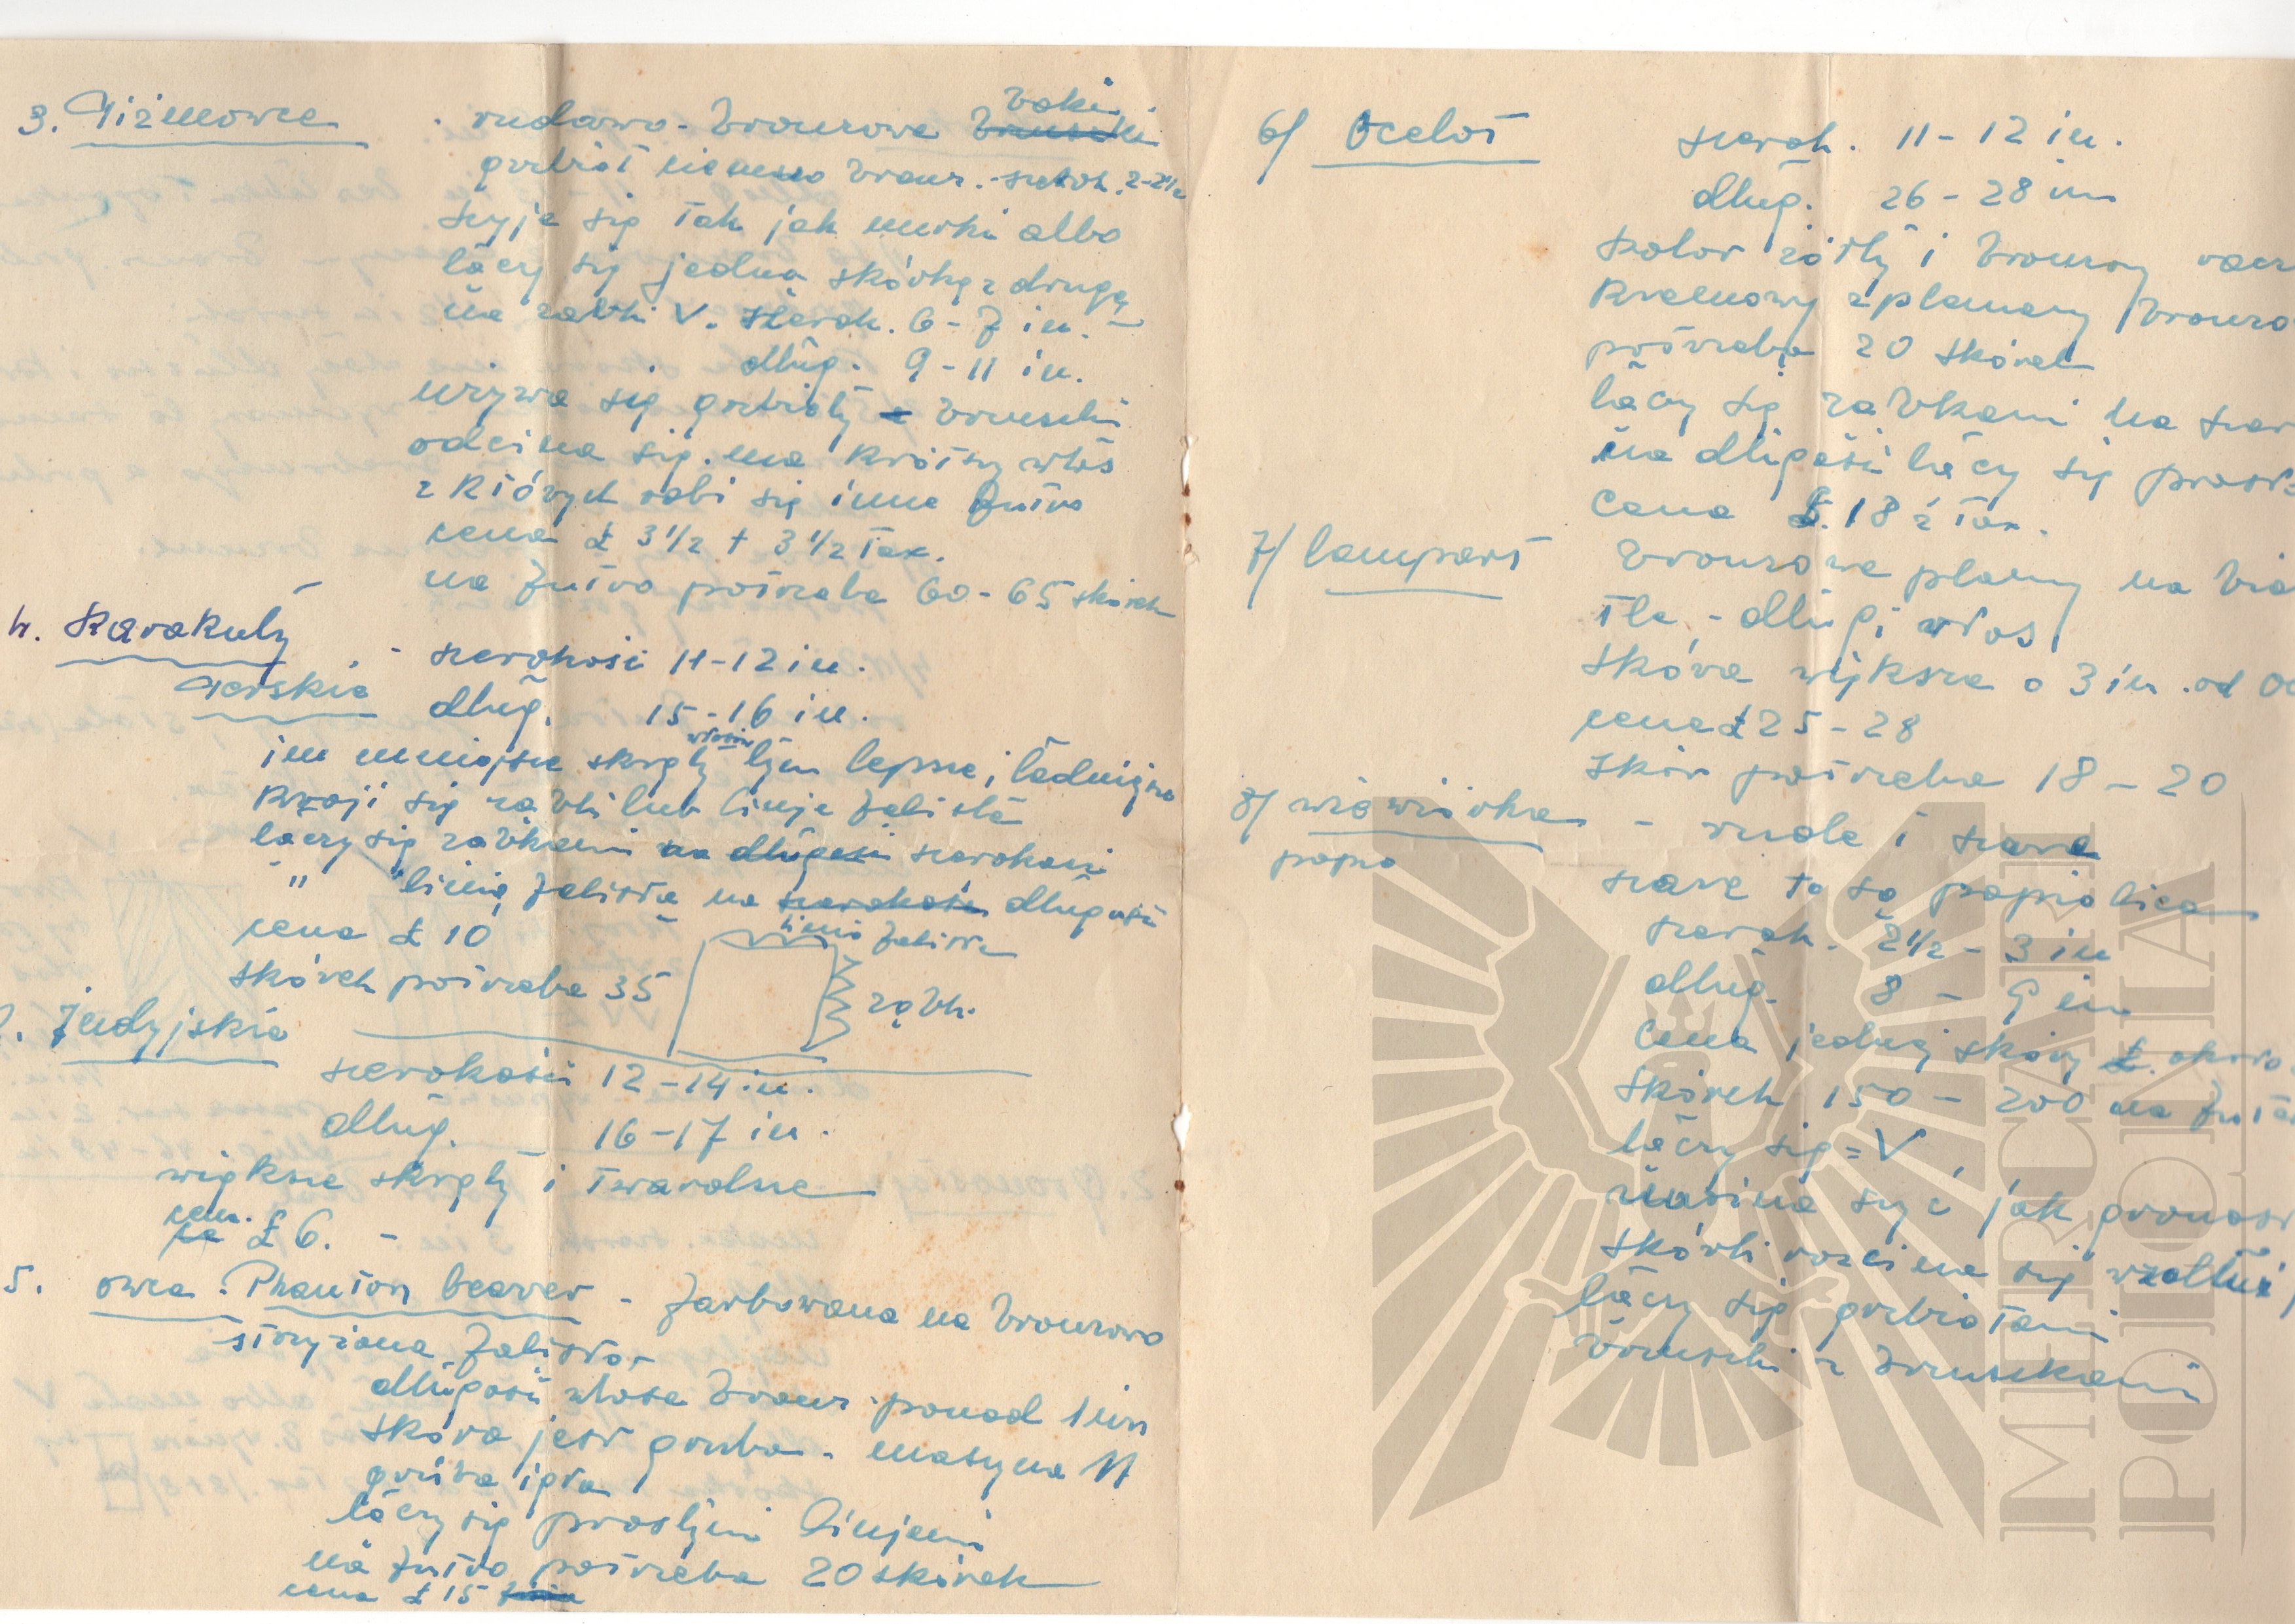 3. Piżmowce - rudawo-bronzowe ~~brzuszki~~ boki
grzbiet ciemno bronz. - szerok. 2-2½
szyje się tak jak nurki albo
łączy się jedna skórkę z drugą
na ząbki V. szerok. 6-7 in. -
dług. 9-11 in.
używa się grzbiety brzuszki
odcina się. ma krótszy włos
z których robi się inne futro
cena £ 3½ + 3½ tax.
na futro potrzeba 60-65 skórek
4. Karakuły - szerokość 11-12 in.
Perskie dług. 15-16 in.
im mniejsze skręty włosów tym lepsze i ładniejsze
kroji się ząbki lub linje falistą
łączy się ząbkami ~~na długości~~ szerokości
" " linią falistą na ~~szerokości~~ długości
cena £ 10
linia falista
skórek potrzeba 35
ząbk.
2. Indyjskie
szerokość 12-14 in.
dług. 16-17 in.
większe skręty i twardsze
cen. £ 6. -
5. owca. Phanton beaver - farbowana na bronzowo
strzyżona falisto -
długość włosa bronz. ponad 1 in
skóra jest gruba - maszyna 17
gruba igła
łączy się prostymi linjami
na futro potrzeba 20 skórek
cena £ 15
6/ Ocelot szerok. 11-12 in.
dług. 26-28 in
kolor żółty i bronzowy
kremowy z plamamy
potrzeba 20 skórek
łączy się ząbkami na szer
na długości łączy się prost
Cena £. 18 z tax.
7/ lampart bronzowe plamy na
tle - długi włos
skóra większa o 3 in. od Oc
cena £ 25-28
skór potrzeba 18-20
8/ wiewiórka - rude i szare
szare to są popielice
szerok. 2½ - 3 in
dług. 8 - 9 in
Cena jednej skóry £.
skórek 150 - 200 na
łączy się = V
można szyć jak gronost
skórki rozcina się wzdłuż
łączy się grzbietami
brzuszki z brzuszkami
MERCARI
POLONIA